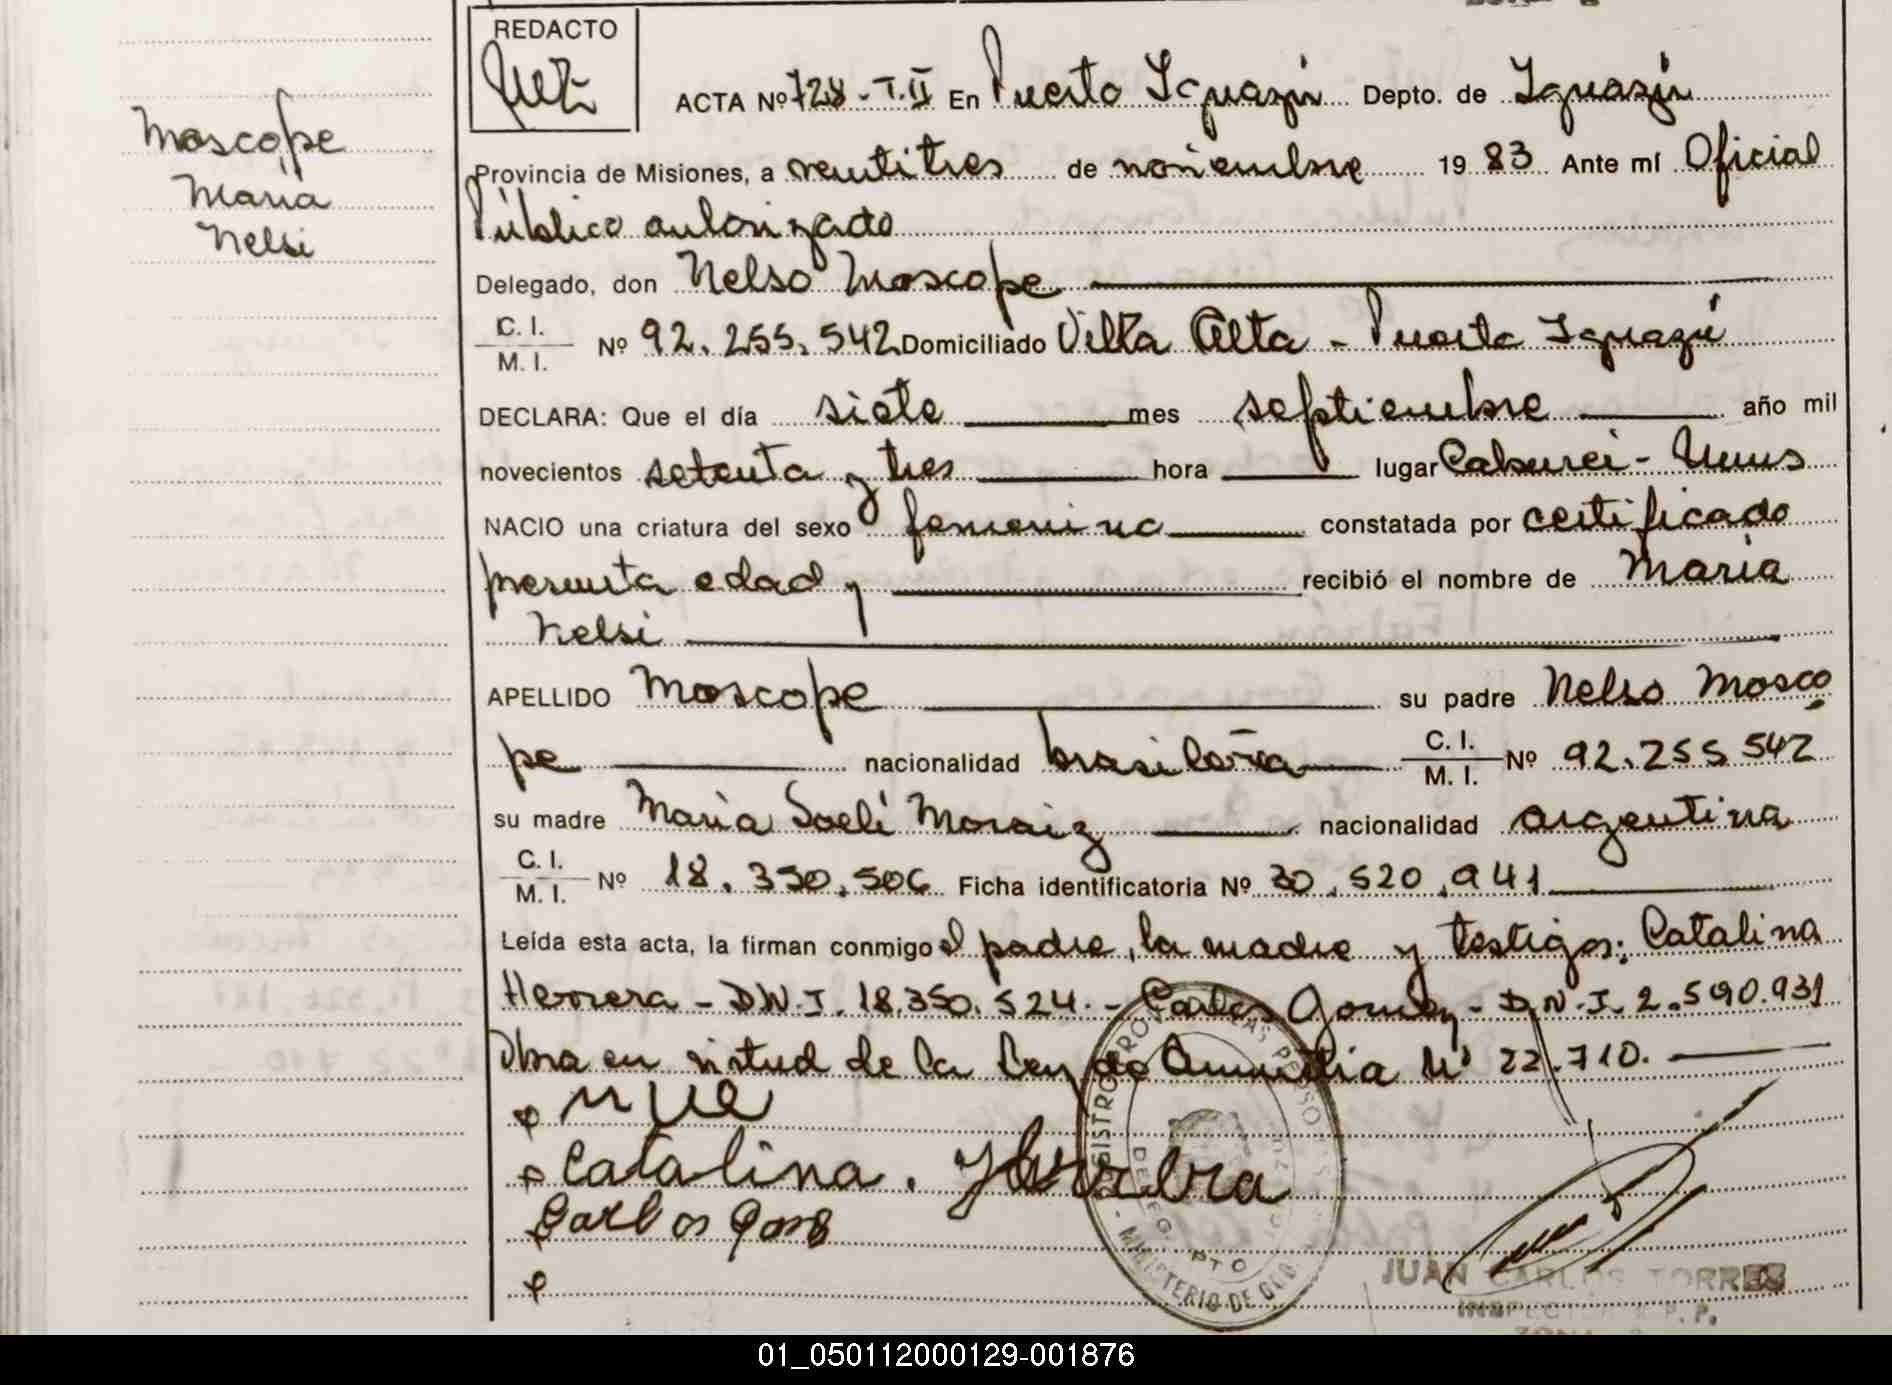 REDACTO
Moscope
Maria
Nelsi
ACTA Nº 728 - T. II En Puerto Iguazú Depto. de Iguazú
Provincia de Misiones, a veintitres de noviembre 19 83 Ante mí Oficial
Público autorizado
Delegado, don Nelso Moscope
C. I.
M. I. Nº 92.255.542 Domiciliado Villa Alta - Puerto Iguazú
DECLARA: Que el día siete mes septiembre año mil
novecientos setenta y tres hora lugar Caburei - Mnes
NACIO una criatura del sexo femenina constatada por certificado
presunta edad y recibió el nombre de Maria
Nelsi
APELLIDO Moscope su padre Nelso Mosco
pe nacionalidad brasileña C. I.
M. I. Nº 92.255 542
su madre Maria Soelí Moraiz nacionalidad argentina
C. I.
M. I. Nº 18.350.506 Ficha identificatoria Nº 30.520.941
Leída esta acta, la firman conmigo el padre, la madre y testigos: Catalina
Herrera - D.N.I. 18.350.524. - Carlos Gomez - D.N.I. 2.590.931
Obra en virtud de la Ley de Amnistia Nº 22.710.
Catalina.
Carlos Gom
JUAN CARLOS TORRES
INSPECTOR R.P.P.
ZONA
01_050112000129-001876